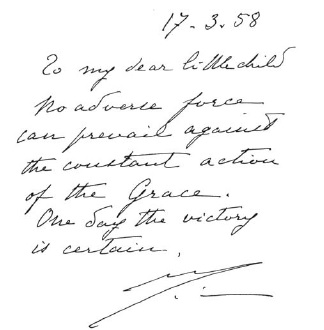 17-3-58
To my dear little child
No adverse force
can prevail against
the constant action
of the Grace.
One day the victory
is certain.